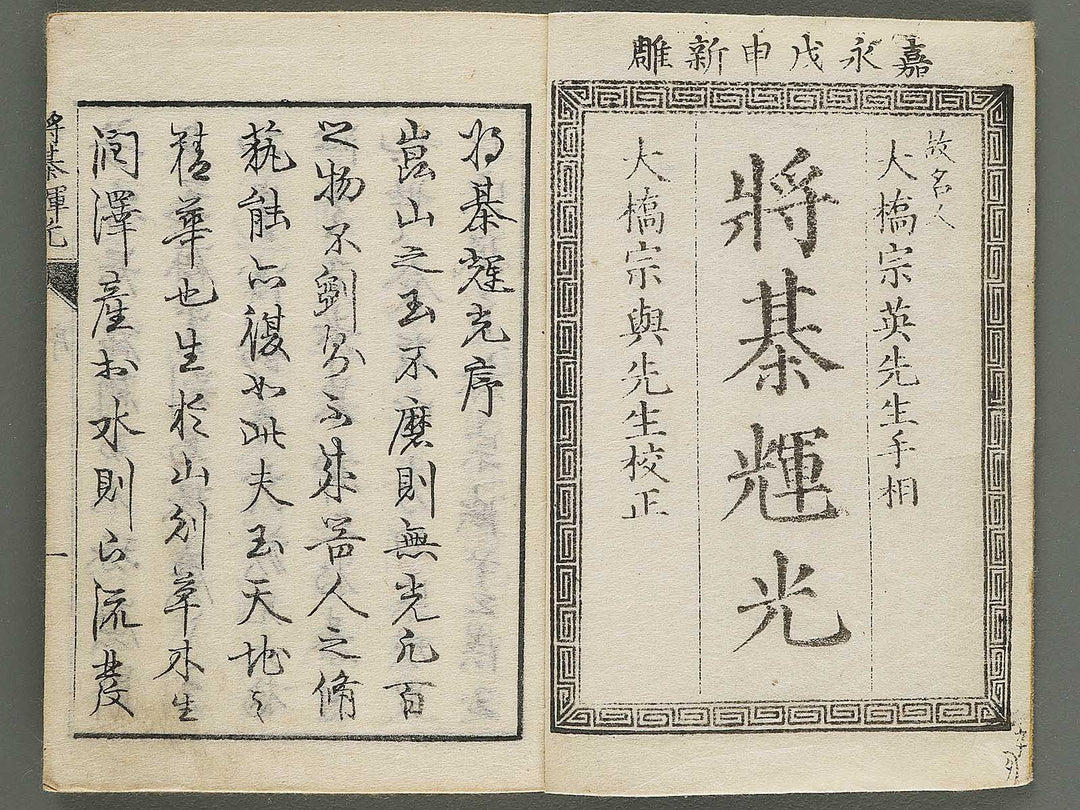 嘉永戊申新雕
故名人
大橋宗英先生手相
將棊輝光
大橋宗與先生校正
将棊輝光序
崑山之玉不磨則無光凡百
之物不剫多不成器人之脩
藝能亦復如此夫玉天地之
精華也生於山則草木生
潤澤産於水則山流發
將棊輝光
一